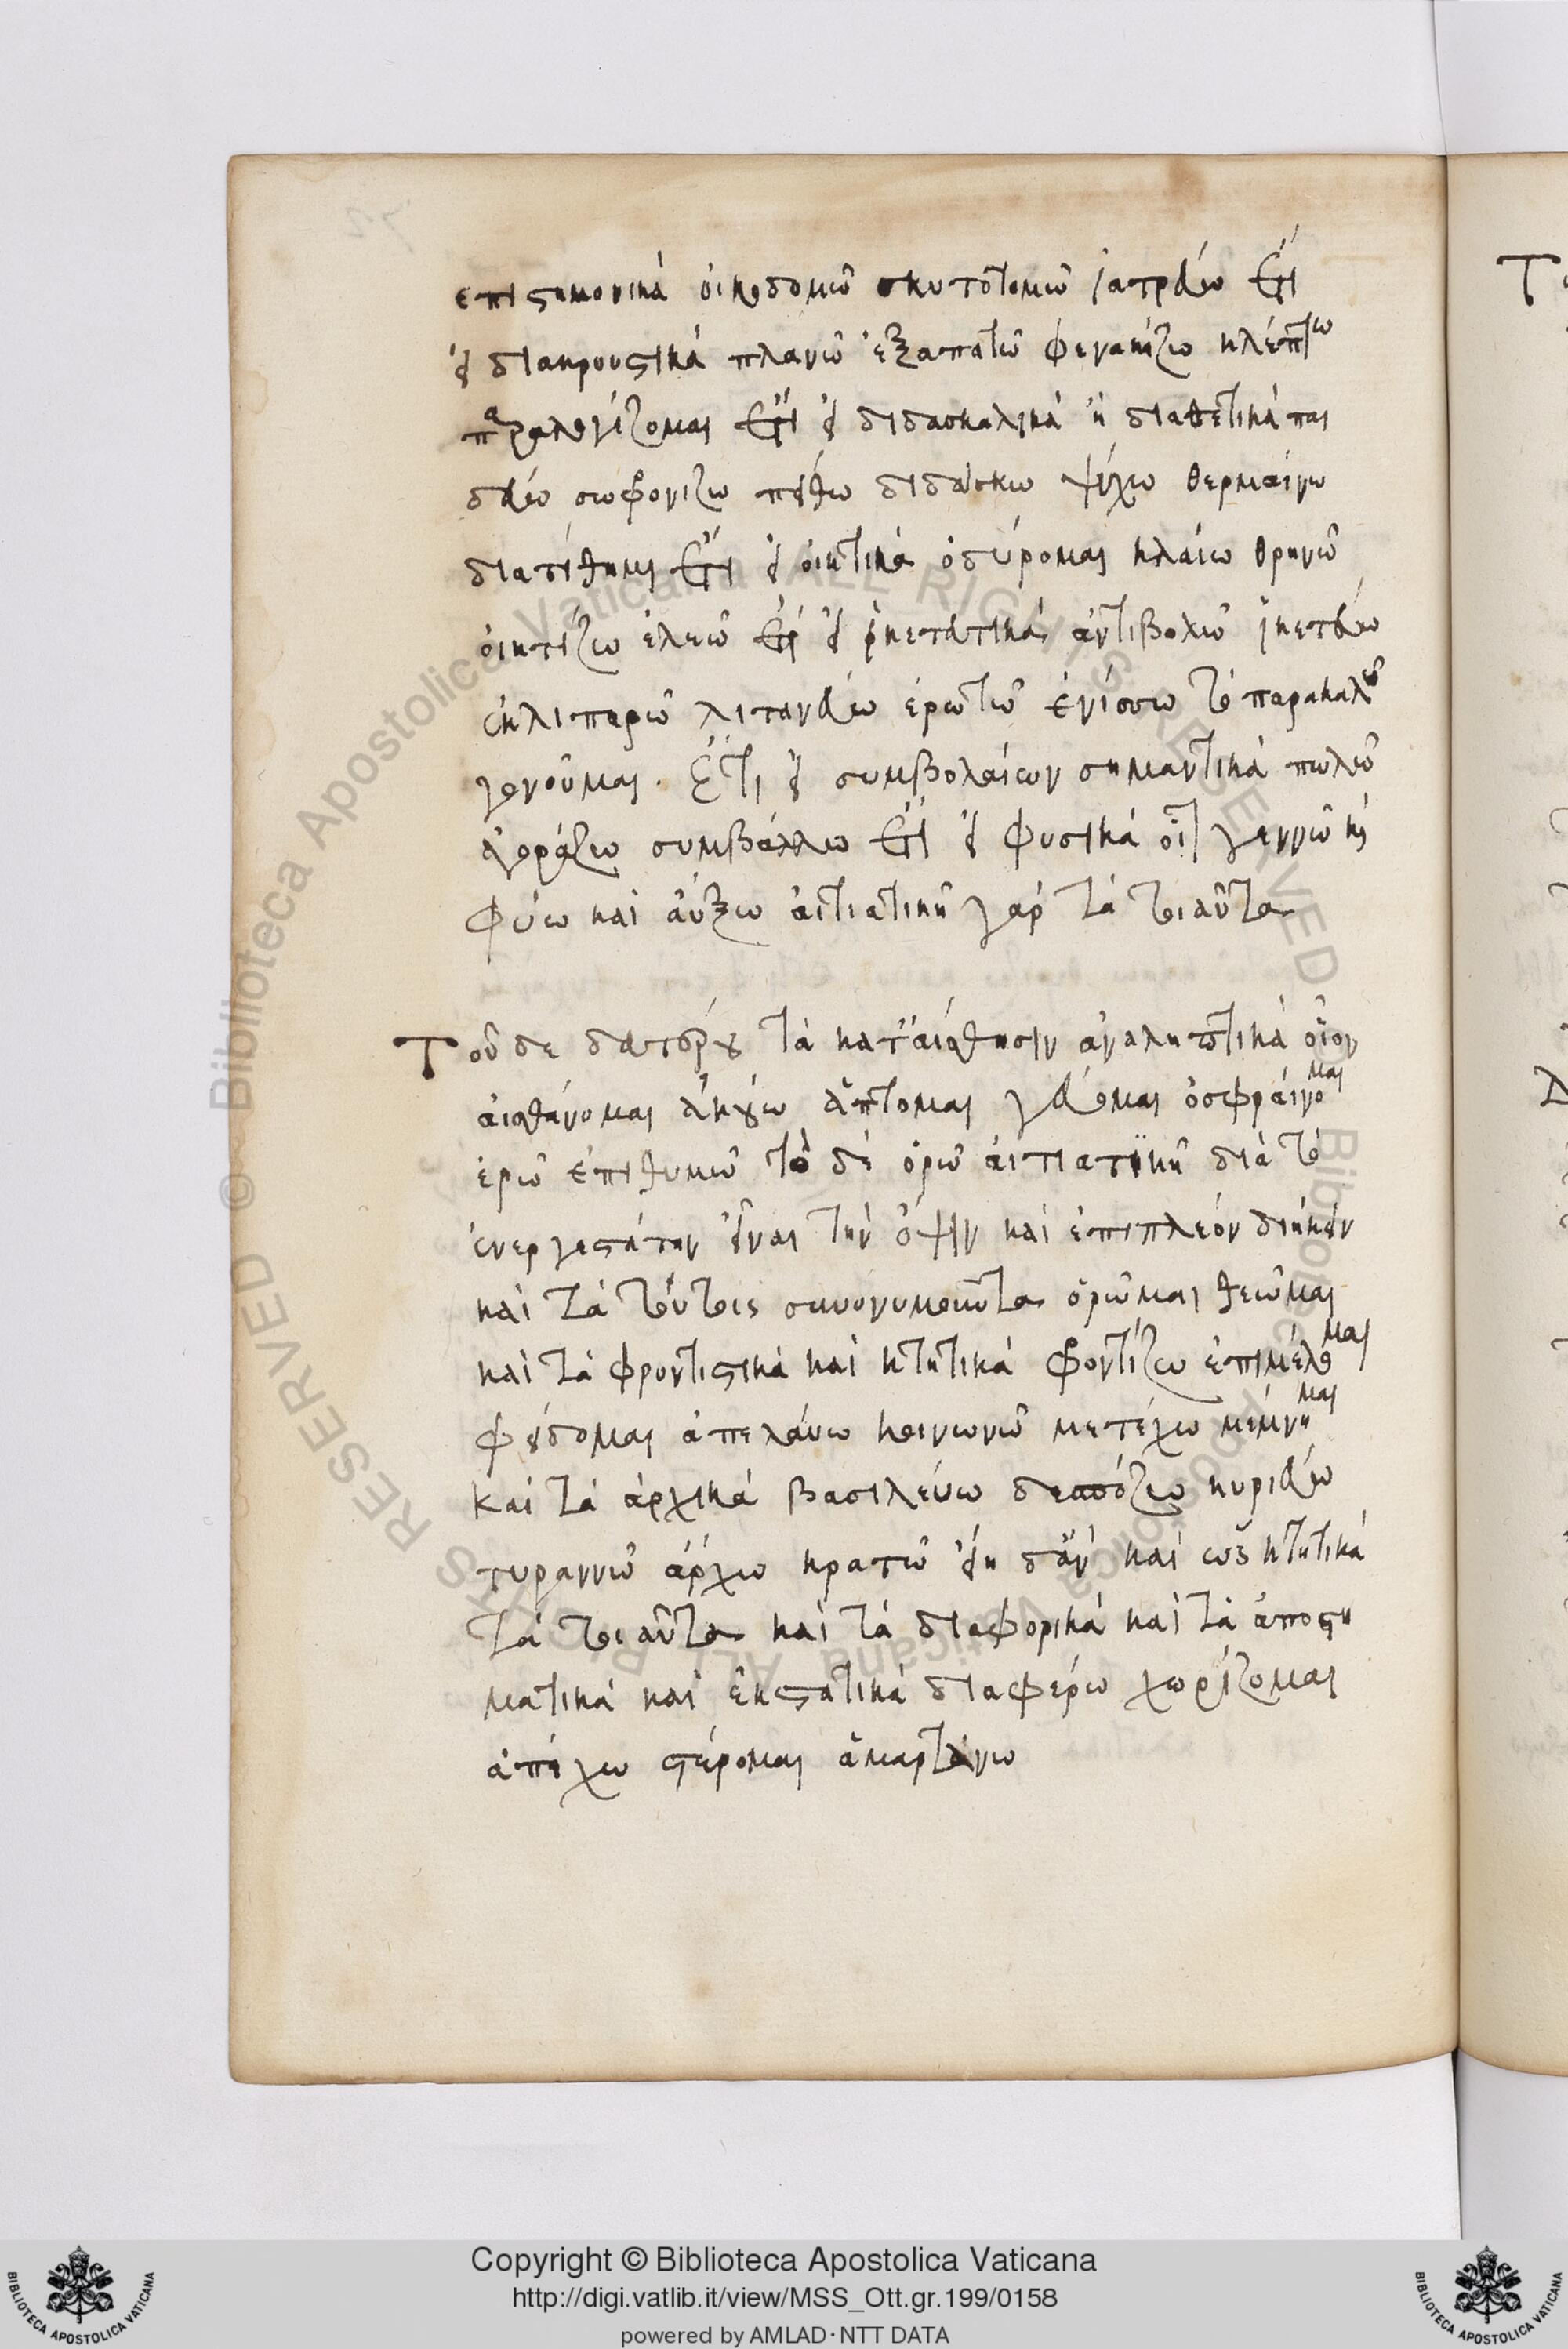 επιστημονικά οἰκοδομῶ σκυτοτομῶ ἰατρεύω ἔτι
εἰ διακρουστικά πλανῶ ἐξαπατῶ φενακίζω κλέπτω
παραλογίζομαι ἔτι εἰ διδασκαλικά ἢ διαθετικά παι
δεύω σωφρονίζω πείθω διδάσκω ψύχω θερμαίνω
διατίθημι ἔτι εἰ οἰκτικά ὀδύρομαι κλαίω θρηνῶ
οἰκτίζω ἐλεῶ ἔτι εἰ ἱκετευτικά ἀντιβολῶ ἱκετεύω
ἐκλιπαρῶ λιτανεύω ἐρωτῶ ἐνίσσω τὸ παρακαλῶ
γουνοῦμαι. ἔτι εἰ συμβολαίων σημαντικά πωλῶ
ἀγοράζω συμβάλλω ἔτι εἰ φυσικά οἷον γεννῶ καὶ
φύω καὶ αὔξω αἰτιατικῇ γὰρ τὰ τοιαῦτα
Τοῦ δε δευτέρου τὰ κατ' αἴσθησιν ἀναληπτικά οἷον
αἰσθάνομαι ἀκούω ἅπτομαι γεύομαι ὀσφραίνομαι
ἐρῶ ἐπιθυμῶ τὸ δὲ ὁρῶ αἰτιατικῇ διὰ τὸ
ἐνεργεστάτην εἶναι τὴν ὄψιν καὶ ἐπιπλεόν διήκειν
καὶ τὰ τούτοις συνονυμοῦντα ὁρῶμαι θεῶμαι
καὶ τὰ φροντιστικά καὶ κτητικά φροντίζω ἐπιμέλομαι
φείδομαι ἀπελαύω κοινωνῶ μετέχω μέμνημαι
καὶ τὰ ἀρχικά βασιλεύω δεσπόζω κυριεύω
τυραννῶ ἄρχω κρατῶ εἴη δ' ἄν καὶ ὡς κτητικά
τὰ τοιαῦτα καὶ τὰ διαφορικά καὶ τὰ ἀποστη
ματικά καὶ ἐκστατικά διαφέρω χωρίζομαι
ἀπέχω στέρομαι ἁμαρτάνω
© Biblioteca Apostolica Vaticana ALL RIGHTS RESERVED
Copyright © Biblioteca Apostolica Vaticana
http://digi.vatlib.it/view/MSS_Ott.gr.199/0158
powered by AMLAD·NTT DATA
BIBLIOTECA APOSTOLICA VATICANA
BIBLIOTECA APOSTOLICA VATICANA